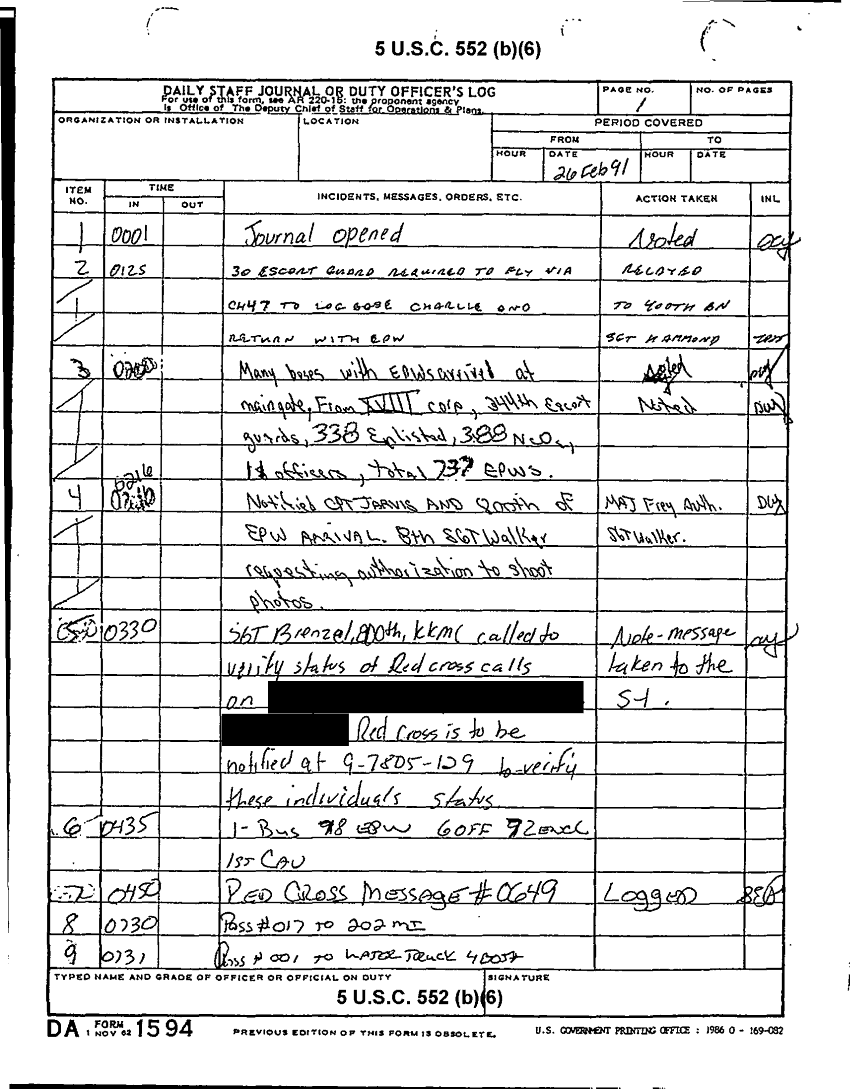 5 U.S.C. 552 (b)(6)
DAILY STAFF JOURNAL OR DUTY OFFICER'S LOG
For use of this form, see AR 220-15; the proponent agency
is Office of The Deputy Chief of Staff for Operations & Plans.
PAGE NO.
1
NO. OF PAGES
ORGANIZATION OR INSTALLATION
LOCATION
PERIOD COVERED
FROM
TO
HOUR
DATE
HOUR
DATE
26 Feb 91
ITEM NO.
TIME
IN
OUT
INCIDENTS, MESSAGES, ORDERS, ETC.
ACTION TAKEN
INL
1 0001 Journal opened Noted
2 0125 30 ESCORT GUARD REQUIRED TO FLY VIA RELAYED
CH47 TO LOG BASE CHARLIE AND TO 400TH BN
RETURN WITH EPW SGT HAMMOND
3 Many buses with EPWs arrived at
maingate, From XVIII corp, 344th Escort Noted
guards, 338 Enlisted, 388 NCOs,
11 officers, total 737 EPWS.
4 0216 Notified CPT JARVIS AND 400th of MAJ Frey Auth.
EPW ARRIVAL. 8th SGT Walker SGT Walker.
requesting authorization to shoot
photos.
0330 SGT Brenzel, 800th, KKMC called to Note-message
verify status of Red cross calls taken to the
on S-1.
Red Cross is to be
notified at 9-7805-129 to verify
these individuals status
6 0435 1- Bus 98 EPW 6 OFF 92 ENL
1ST CAV
7 0450 RED CROSS MESSAGE # 0649 LOGGED
8 0730 Pass # 017 to 202 MI
9 0731 Pass # 001 TO WATER TRUCK 400TH
TYPED NAME AND GRADE OF OFFICER OR OFFICIAL ON DUTY
SIGNATURE
5 U.S.C. 552 (b)(6)
DA FORM 1 NOV 62 1594
PREVIOUS EDITION OF THIS FORM IS OBSOLETE.
U.S. GOVERNMENT PRINTING OFFICE : 1986 O - 169-082